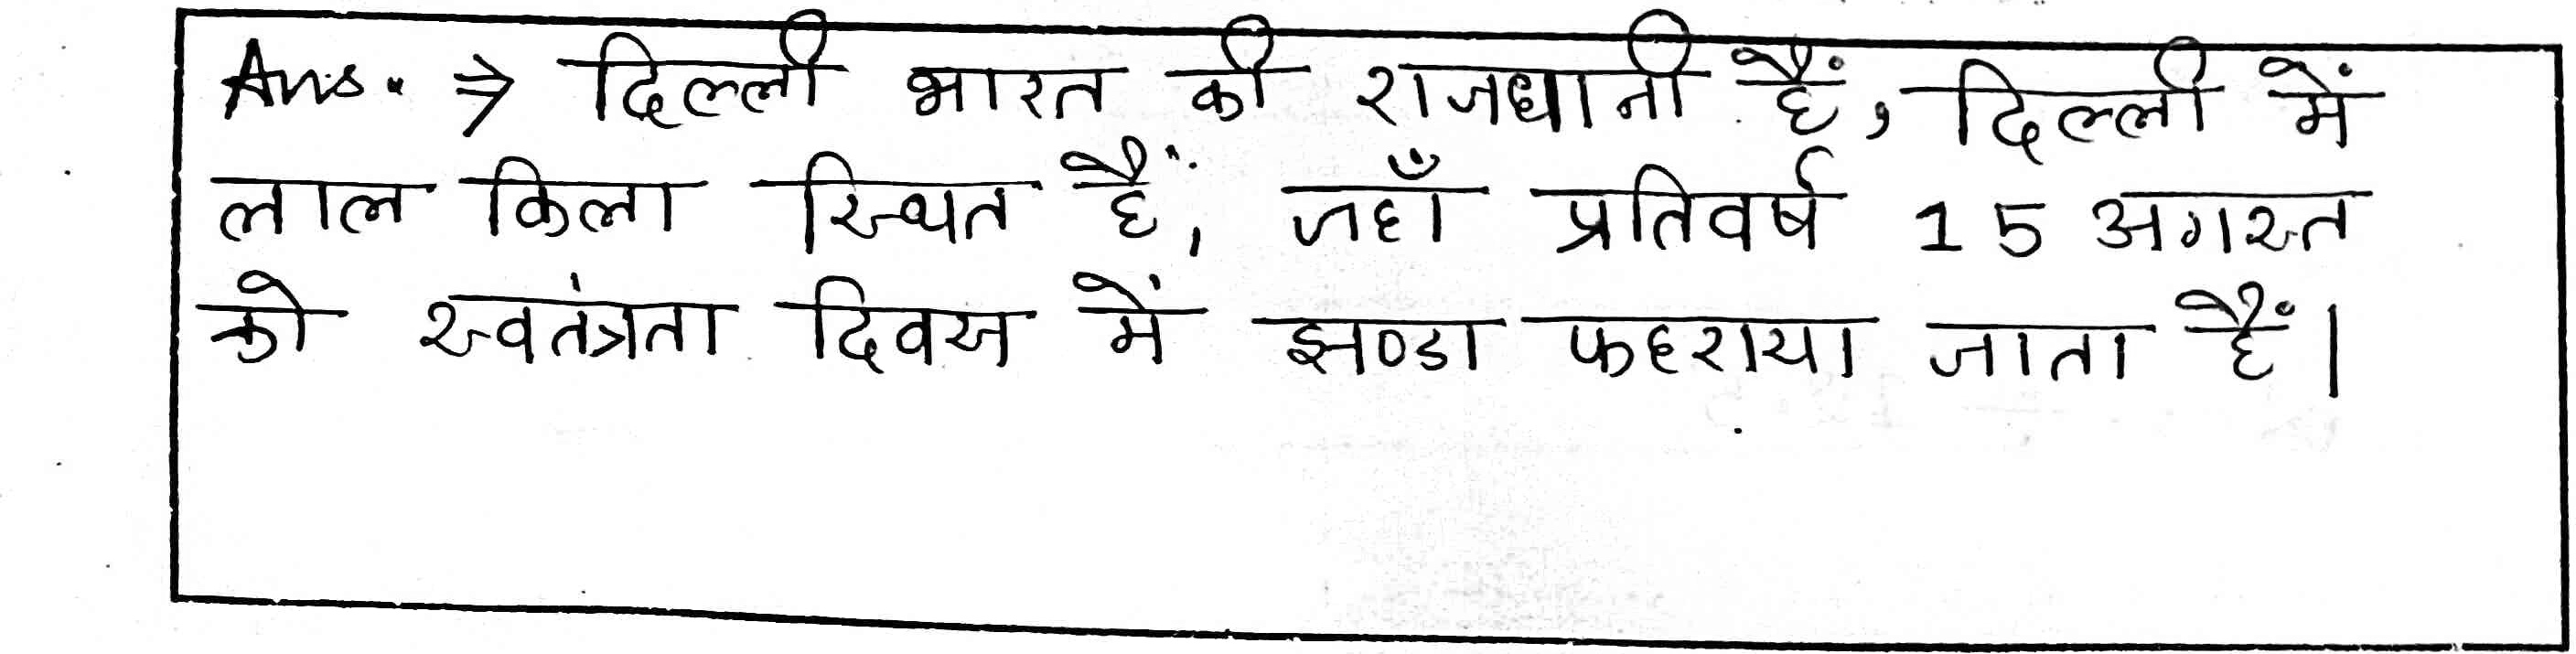 Ans. ⇒ दिल्ली भारत की राजधानी हैं, दिल्ली में
लाल किला स्थित हैं, जहाँ प्रतिवर्ष 15 अगस्त
को स्वतंत्रता दिवस में झण्डा फहराया जाता हैं।